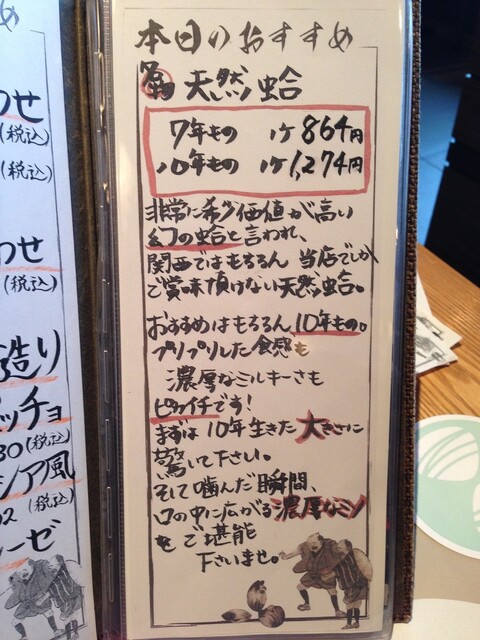 本日のおすすめ
天然蛤
7年もの 1ケ864円
10年もの 1ケ1,274円
非常に希少価値が高い
幻の蛤と言われ、
関西ではもちろん 当店でしか
ご賞味頂けない天然蛤。
おすすめはもちろん10年もの。
プリプリした食感も
濃厚なミルキーさも
ピカイチです!
まずは10年生きた大きさに
驚いて下さい。
そして噛んだ瞬間、
口の中に広がる濃厚なミソ
をご堪能
下さいませ。
め
わせ
(税込)
(税込)
わせ
(税込)
造り
ッチョ
30(税込)
シア風
02
(税込)
ーゼ